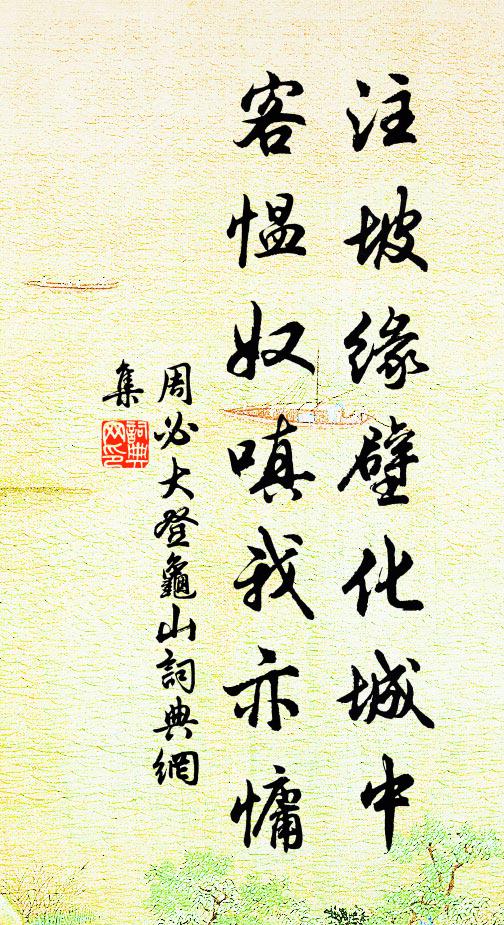 注坡缘壁化城中
客愠奴嗔我亦慵
周必大登龜山詞典網
集
詞典
网印